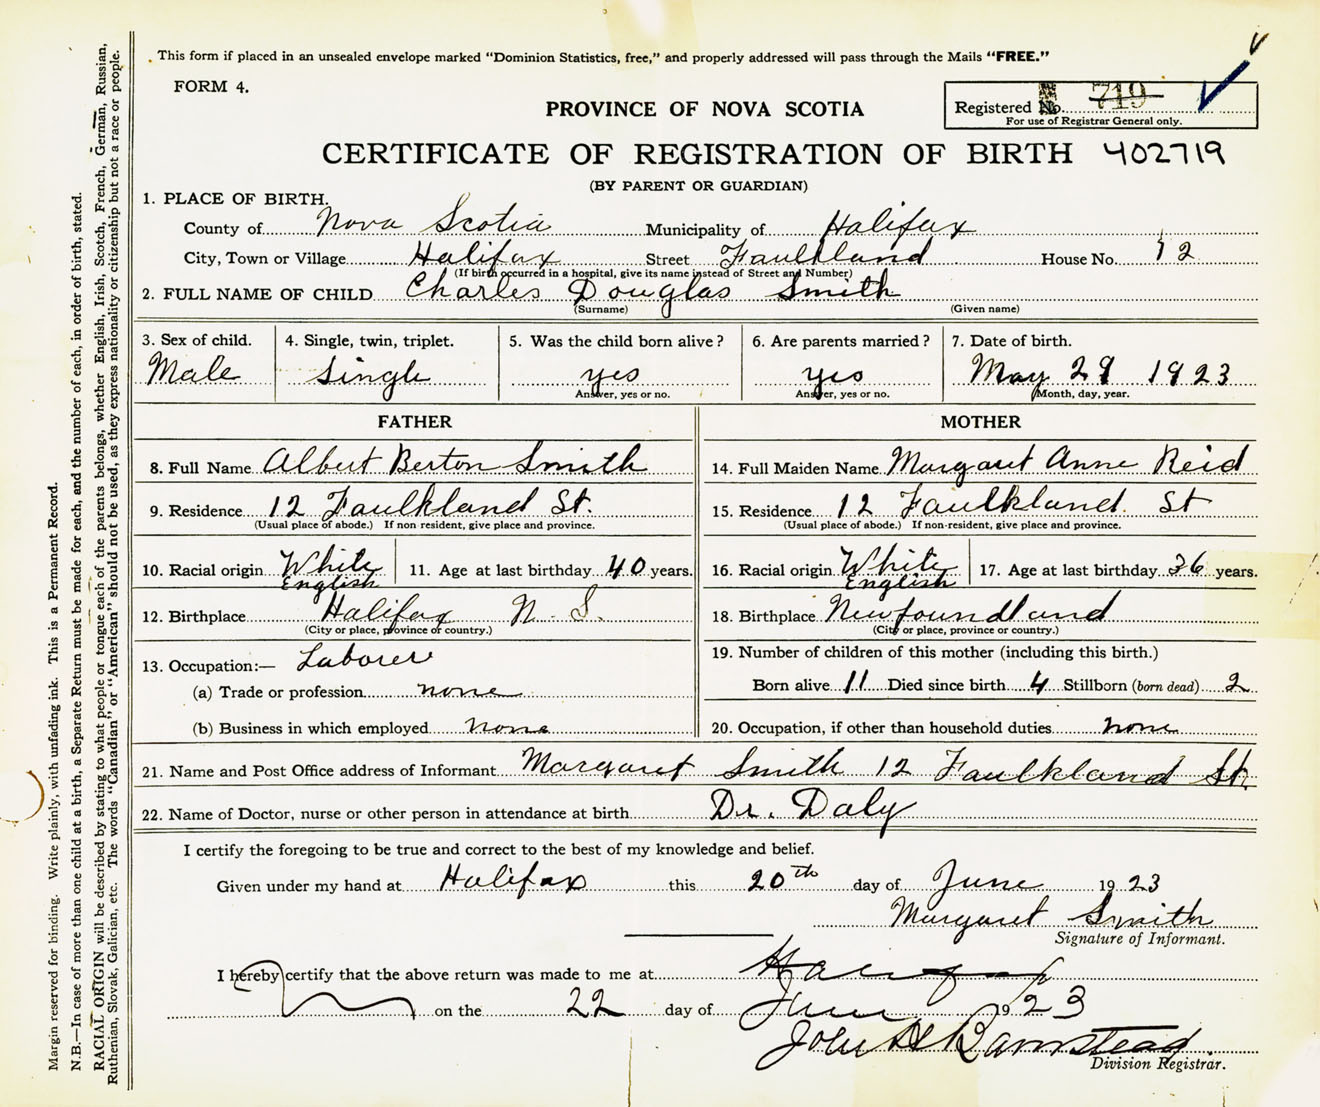 This form if placed in an unsealed envelope marked "Dominion Statistics, free," and properly addressed will pass through the Mails "FREE."
FORM 4.
Registered No. 719
For use of Registrar General only.
PROVINCE OF NOVA SCOTIA
CERTIFICATE OF REGISTRATION OF BIRTH 402719
(BY PARENT OR GUARDIAN)
1. PLACE OF BIRTH.
County of Nova Scotia Municipality of Halifax
City, Town or Village Halifax Street Faulkland House No. 12
(If birth occurred in a hospital, give its name instead of Street and Number)
2. FULL NAME OF CHILD Charles Douglas Smith
(Surname) (Given name)
3. Sex of child. 4. Single, twin, triplet. 5. Was the child born alive? 6. Are parents married? 7. Date of birth.
Male Single yes yes May 29 1923
Answer, yes or no. Answer, yes or no. Month, day, year.
FATHER MOTHER
8. Full Name Albert Berton Smith 14. Full Maiden Name Margaret Anne Reid
9. Residence 12 Faulkland St. 15. Residence 12 Faulkland St
(Usual place of abode.) If non-resident, give place and province. (Usual place of abode.) If non-resident, give place and province.
10. Racial origin White English 11. Age at last birthday 40 years. 16. Racial origin White English 17. Age at last birthday 36 years.
12. Birthplace Halifax N. S. 18. Birthplace Newfoundland
(City or place, province or country.) (City or place, province or country.)
13. Occupation:— Laborer 19. Number of children of this mother (including this birth.)
(a) Trade or profession none Born alive 11 Died since birth 4 Stillborn (born dead) 2
(b) Business in which employed none 20. Occupation, if other than household duties none
21. Name and Post Office address of Informant Margaret Smith 12 Faulkland St.
22. Name of Doctor, nurse or other person in attendance at birth Dr. Daly
I certify the foregoing to be true and correct to the best of my knowledge and belief.
Given under my hand at Halifax this 20th day of June 1923
Margaret Smith
Signature of Informant.
I hereby certify that the above return was made to me at Halifax
on the 22 day of June 1923
John H Barnstead
Division Registrar.
Margin reserved for binding. Write plainly, with unfading ink. This is a Permanent Record.
N.B.—In case of more than one child at a birth, a Separate Return must be made for each, and the number of each, in order of birth, stated.
RACIAL ORIGIN will be described by stating to what people or tongue each of the parents belongs, whether English, Irish, Scotch, French, German, Russian,
Ruthenian, Slovak, Galician, etc. The words "Canadian" or "American" should not be used, as they express nationality or citizenship but not a race or people.